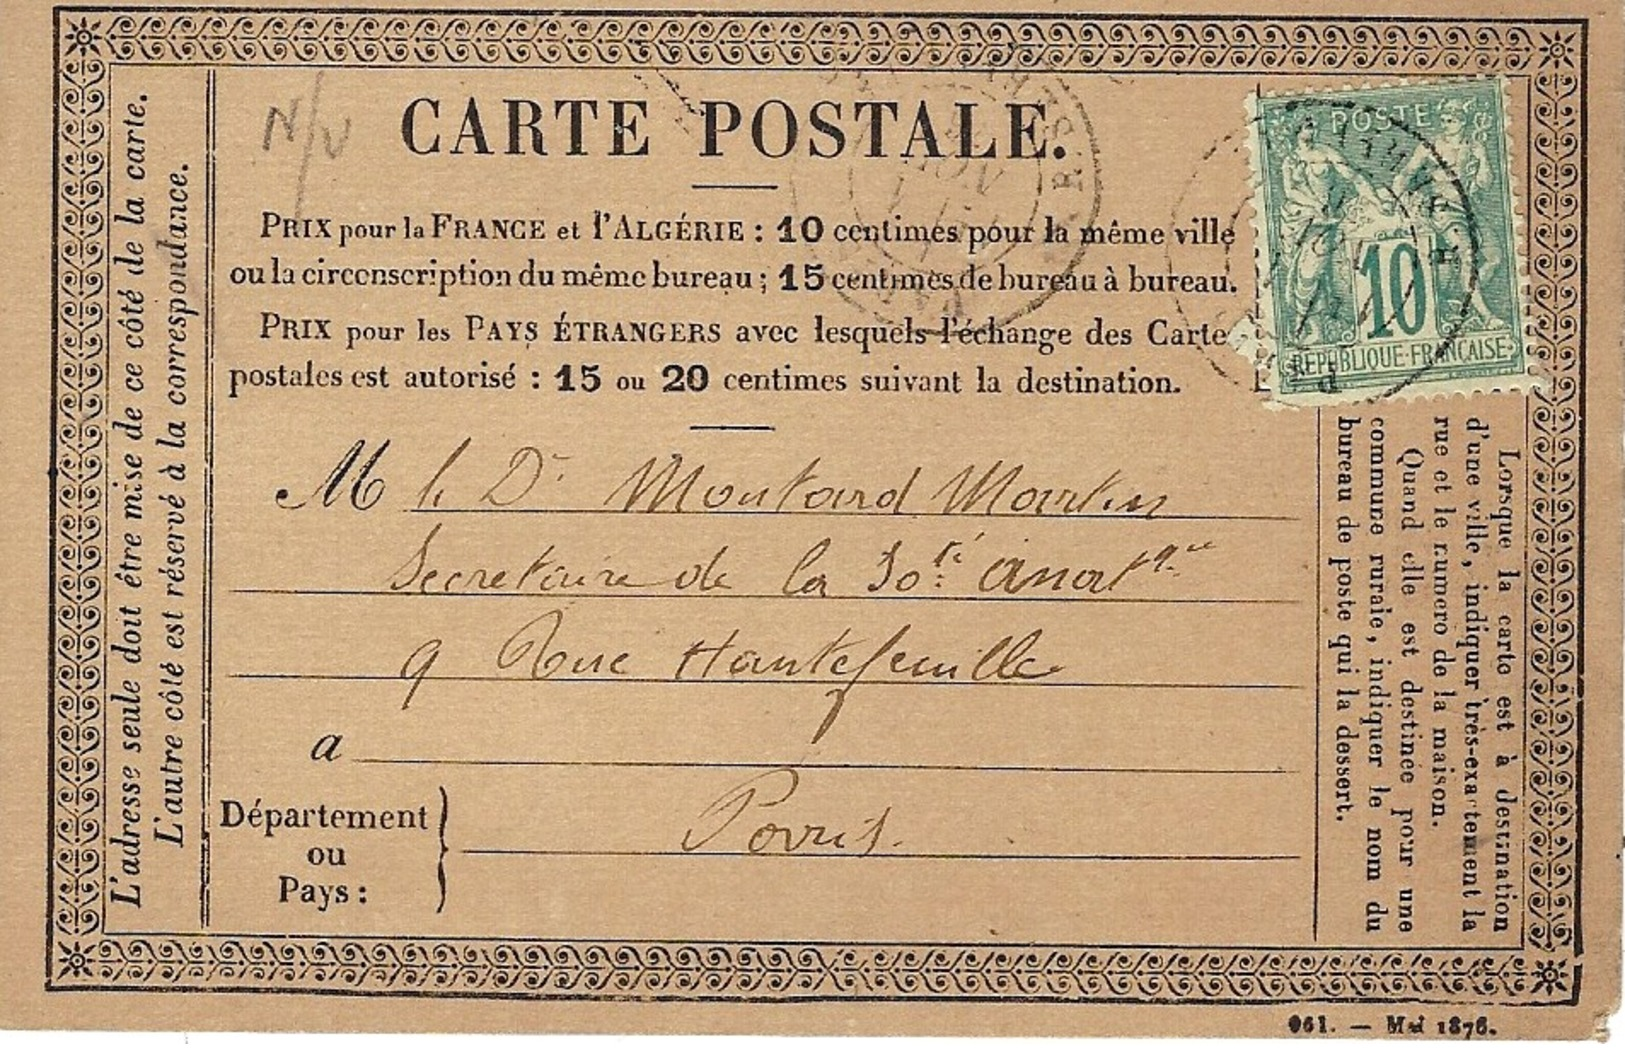 N/V
CARTE POSTALE.
PRIX pour la FRANCE et l'ALGÉRIE : 10 centimes pour la même ville
ou la circonscription du même bureau ; 15 centimes de bureau à bureau.
PRIX pour les PAYS ÉTRANGERS avec lesquels l'échange des Carte
postales est autorisé : 15 ou 20 centimes suivant la destination.
M le Dr Moutard Martin
Secretaire de la Soté Anatque
9 Rue Hautefeuille
a
Paris.
Département
ou
Pays :
L'adresse seule doit être mise de ce côté de la carte.
L'autre côté est réservé à la correspondance.
POSTE
10
REPUBLIQUE FRANCAISE
Lorsque la carte est à destination
d'une ville, indiquer très-exactement la
rue et le numero de la maison.
Quand elle est destinée pour une
commune rurale, indiquer le nom du
bureau de poste qui la dessert.
961. — Mai 1876.